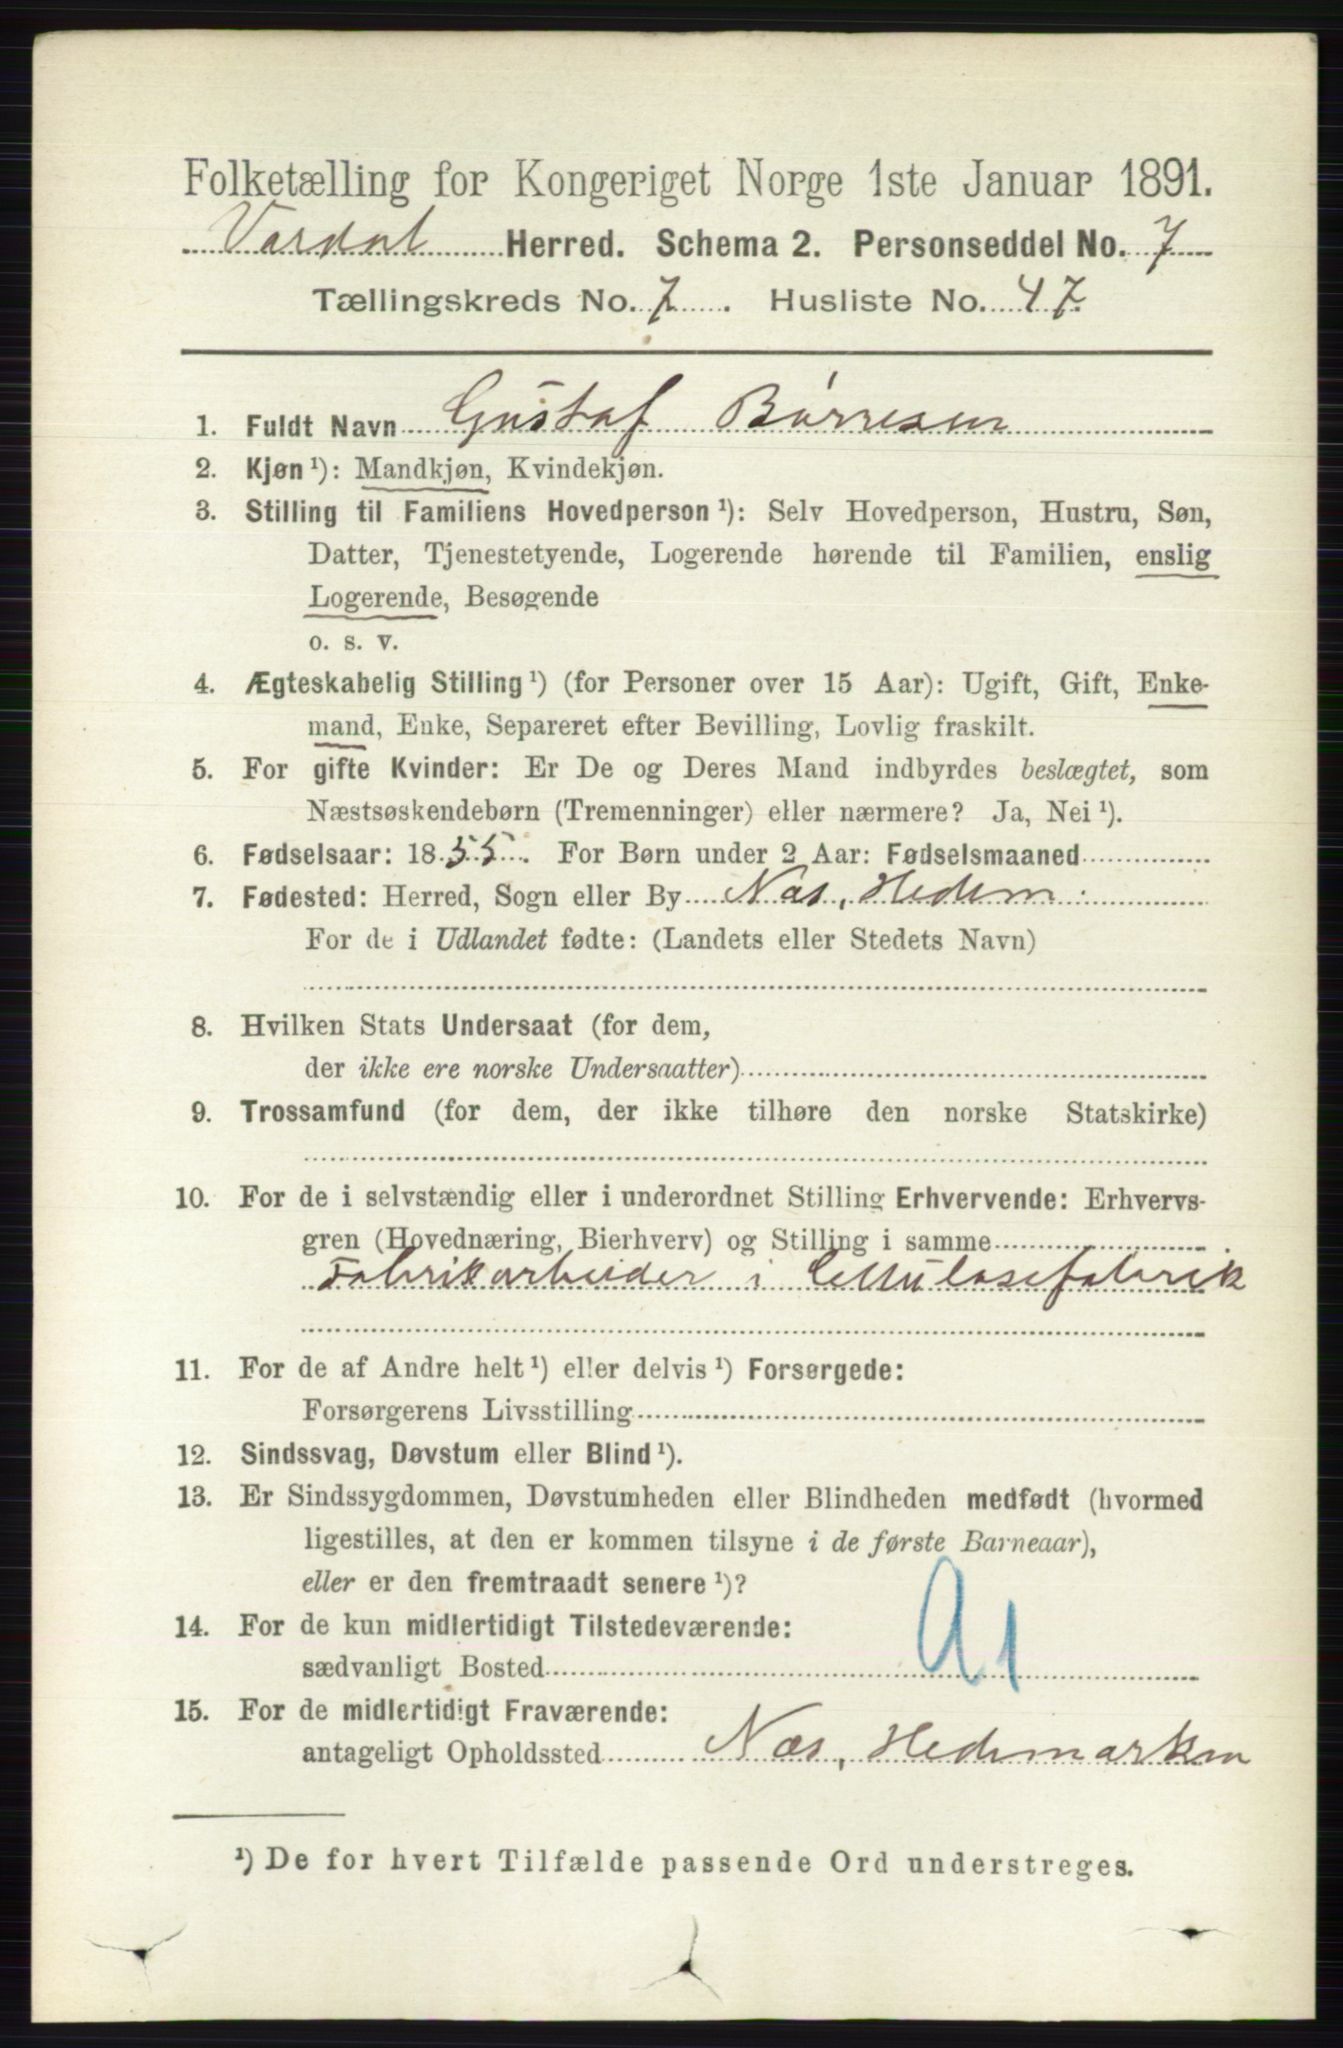 Folketælling for Kongeriget Norge 1ste Januar 1891.
Vardal Herred. Schema 2. Personseddel No. 7
Tællingskreds No. 7. Husliste No. 47.
1. Fuldt Navn Gustaf Børresen
2. Kjøn ¹): Mandkjøn, Kvindekjøn.
3. Stilling til Familiens Hovedperson ¹): Selv Hovedperson, Hustru, Søn,
Datter, Tjenestetyende, Logerende hørende til Familien, enslig
Logerende, Besøgende
o. s. v.
4. Ægteskabelig Stilling ¹) (for Personer over 15 Aar): Ugift, Gift, Enke-
mand, Enke, Separeret efter Bevilling, Lovlig fraskilt.
5. For gifte Kvinder: Er De og Deres Mand indbyrdes beslægtet, som
Næstsøskendebørn (Tremenninger) eller nærmere? Ja, Nei ¹).
6. Fødselsaar: 1855. For Børn under 2 Aar: Fødselsmaaned
7. Fødested: Herred, Sogn eller By Næs, Hedem.
For de i Udlandet fødte: (Landets eller Stedets Navn)
8. Hvilken Stats Undersaat (for dem,
der ikke ere norske Undersaatter)
9. Trossamfund (for dem, der ikke tilhøre den norske Statskirke)
10. For de i selvstændig eller i underordnet Stilling Erhvervende: Erhvervs-
gren (Hovednæring, Bierhverv) og Stilling i samme
Fabrikarbeider i Cellulosefabrik
11. For de af Andre helt ¹) eller delvis ¹) Forsørgede:
Forsørgerens Livsstilling
12. Sindssvag, Døvstum eller Blind ¹).
13. Er Sindssygdommen, Døvstumheden eller Blindheden medfødt (hvormed
ligestilles, at den er kommen tilsyne i de første Barneaar),
eller er den fremtraadt senere ¹)?
14. For de kun midlertidigt Tilstedeværende:
sædvanligt Bosted
15. For de midlertidigt Fraværende:
antageligt Opholdssted Næs, Hedemarken
¹) De for hvert Tilfælde passende Ord understreges.